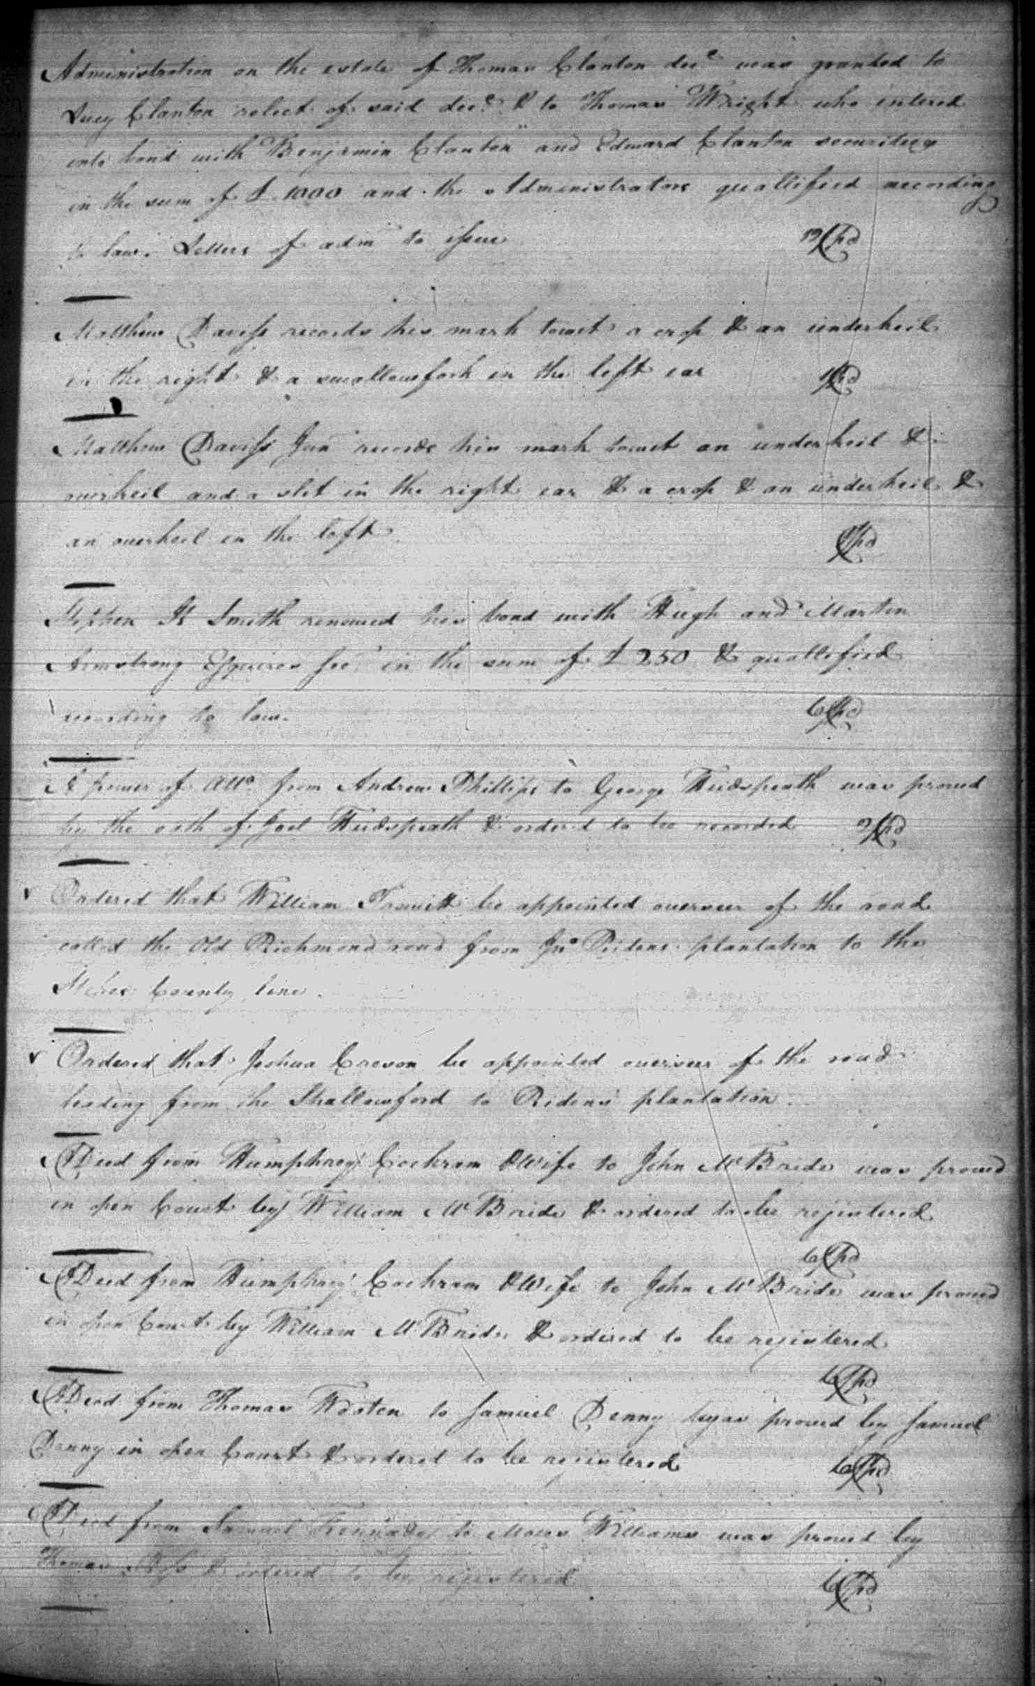 Administration on the estate of Thomas Clanton decd was granted to
Lucy Clanton relict of said decd & to Thomas Wright who entered
into bond with Benjamin Clanton and Edward Clanton securitys
in the sum of £ 1000 and the Administrators quallified according
to law. Letters of admn to issue
Matthew Daviss records his mark towit a crop & an underkeil
in the right & a swallowfork in the left ear
Matthew Daviss Junr records his mark towit an underkeil &
overkeil and a slit in the right ear & a crop & an underkeil &
an overkeil in the left
Stephen K Smith renewed his bond with Hugh and Martin
Armstrong Esquires in the sum of £ 250 & quallified
according to law.
A power of atto from Andrew Phillips to George Hudspeath was proved
by the oath of Joel Hudspeath & ordered to be recorded
Ordered that William be appointed overseer of the road
called the Old Richmond road from Jno Ridens plantation to the
Stokes County line.
Ordered that Joshua Creson be appointed overseer of the road
leading from the Shallowford to Ridens plantation.
A Deed from Humphrey Cochram & Wife to John McBride was proved
in open Court by William McBride & ordered to be registered
A Deed from Humphrey Cochram & Wife to John McBride was proved
in open Court by William McBride & ordered to be registered
A Deed from Thomas Wooten to Samuel Denny was proved by Samuel
Denny in open Court & ordered to be registered
A Deed from Samuel to Moses Williams was proved by
Thomas & ordered to be registered